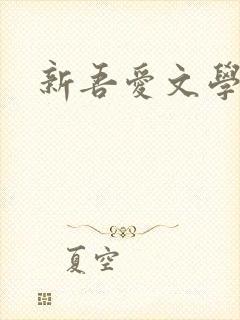 新吾愛文學
夏空